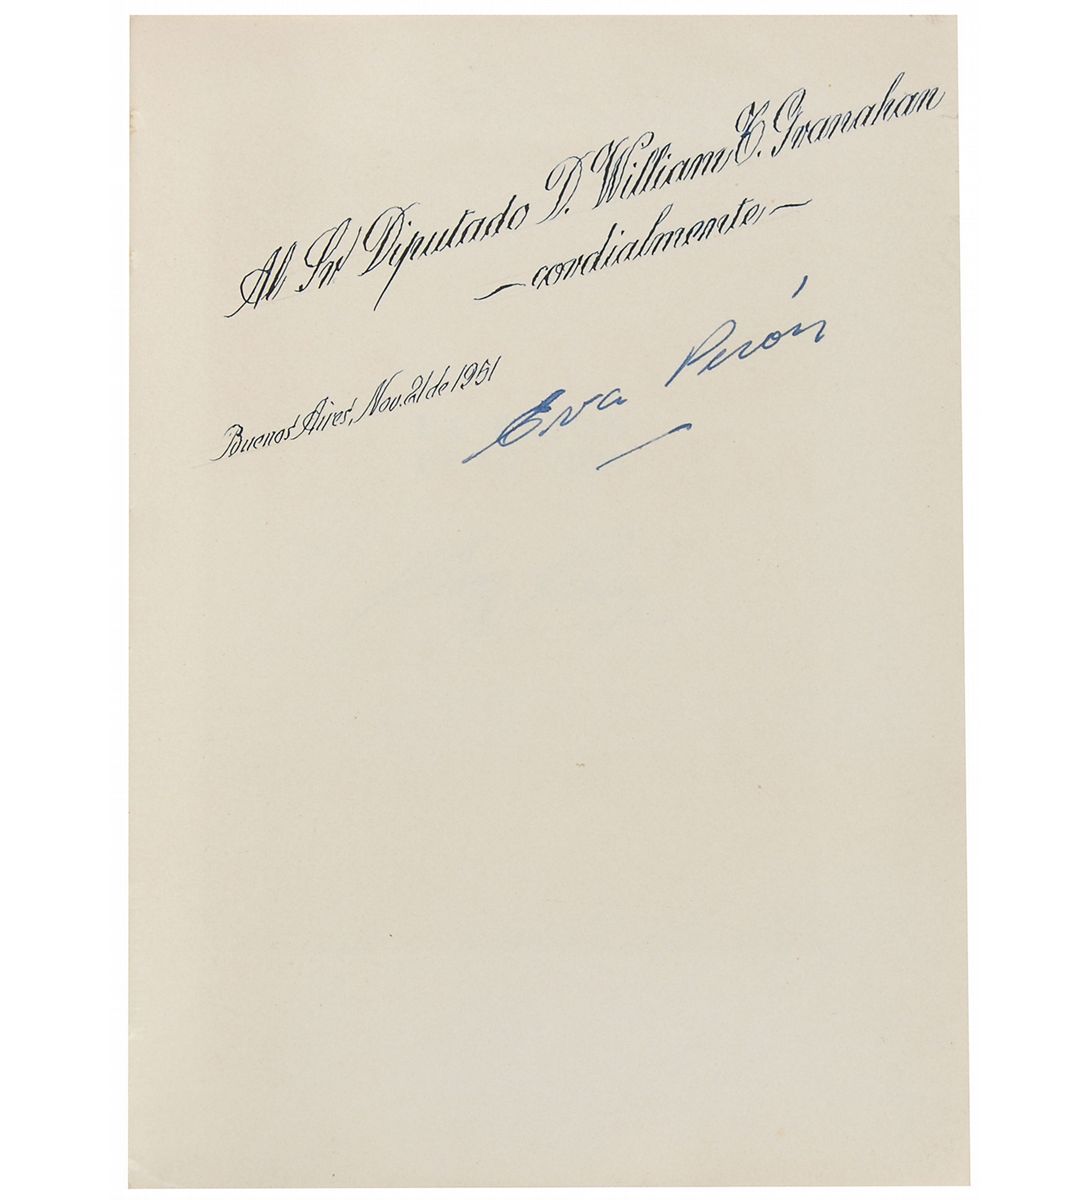 Al Sr Diputado D. William T. Granahan
—cordialmente—
Buenos Aires, Nov. 21 de 1951
Eva Perón